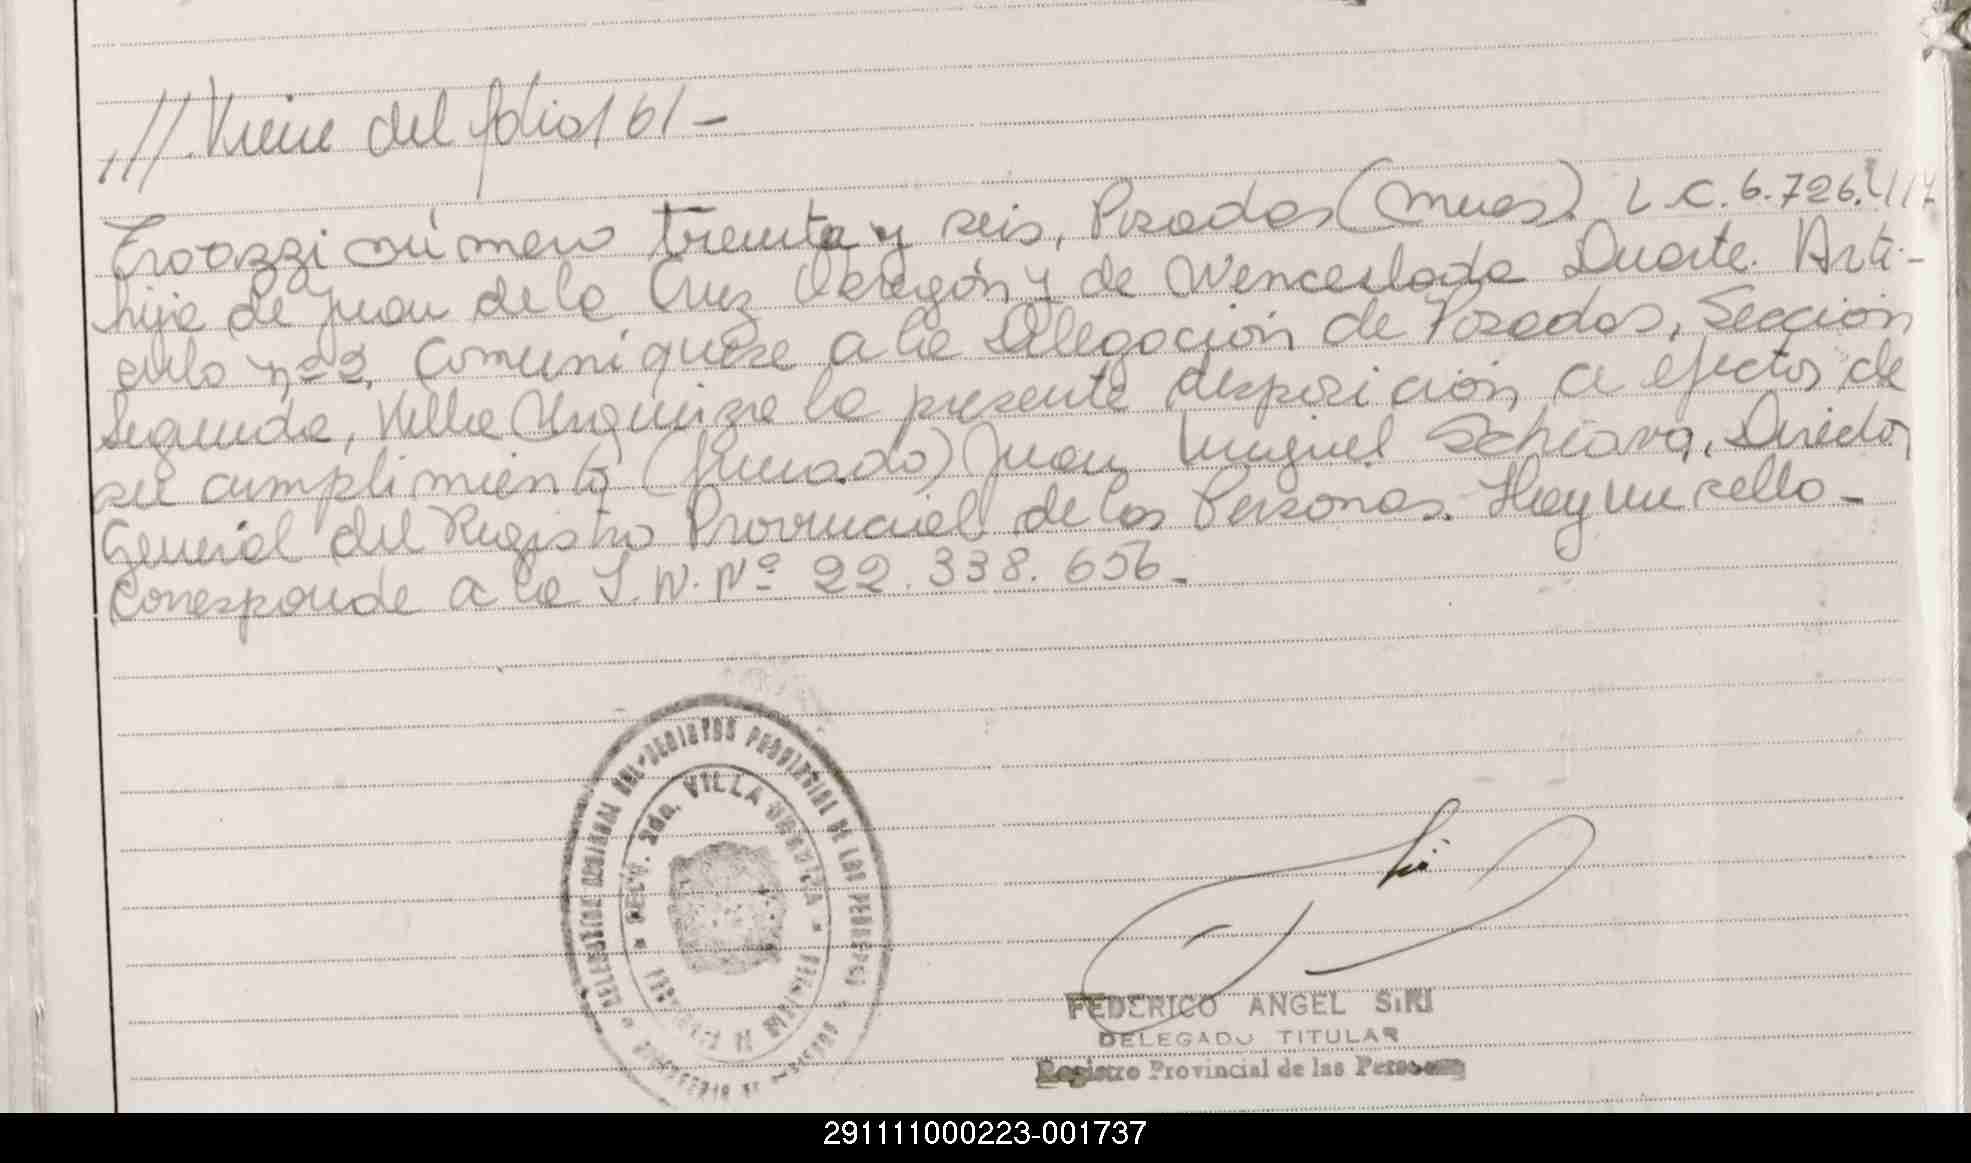 // Viene del folio 161 -
número treinta y seis, Posadas (Mnes). L.C. 6.726.
hija de Juan de la Cruz Obregón y de Wenceslada Duarte. Artí-
culo nº 2, Comuníquese a la Delegación de Posadas, Sección
Segunda, Villa Urquiza la presente disposición, a efectos de
su cumplimiento (firmado) Juan Miguel Schiavo, Director
General del Registro Provincial de las Personas. Hay un sello -
Corresponde a la I.N. Nº 22.338.656.-
DEL REGISTRO PROVINCIAL DE LAS PERSONAS
SECC. 2da. VILLA URQUIZA
FEDERICO ANGEL SIRI
DELEGADO TITULAR
Registro Provincial de las Personas
291111000223-001737